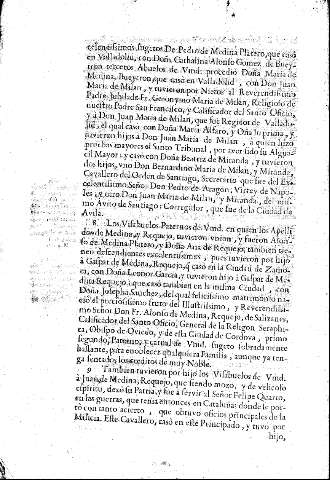 celentissimos sugetos De Pedro de Medina Platero, que casò
en Valladolid, con Doña Cathalina Alonso Gomez de Buey-
tron terceros Abuelos de Vmd. procediò Doña Maria de
Medina, Bueytron, que casò en Valladolid, con Don Juan
Maria de Milan, y tuvieron por Nieto al Reverendissimo
Padre Jubilado Fr. Geronymo Maria de Milan, Religioso de
nuestro Padre San Francisco, y Calificador del Santo Oficio,
y à Don Juan Maria de Milan, que fuè Regidor de Vallado-
lid, el qual casò con Doña Maria Alfaro, y Oña su prima, y
tuvieron hijos à Don Juan Maria de Milan, à quien hizo
pruebas mayores el Santo Tribunal, por aver sido su Algua-
cil Mayor: y casò con Doña Beatriz de Miranda, y tuvieron
dos hijos, vno Don Bernardino Maria de Milan, y Miranda,
Cavallero del Orden de Santiago, Secretario que fuè del Ex-
celentissimo Señor Don Pedro de Aragon, Virrey de Napo-
les, y otro Don Juan Maria de Milan, y Miranda, de mis-
mo Avito de Santiago: Corregidor, que fue de la Ciudad de
Avila.
8 Los Visabuelos Paternos de Vmd. en quien los Apelli-
dos de Medina, y Requejo, tuvieron vnion, y fueron Alon-
so de Medina Platero, y Doña Ana de Requejo, tambien tie-
nen descendientes excelentissimos, pues tuvieron por hijo
à Gaspar de Medina, Requejo, que casò en la Ciudad de Zamo-
ra, con Doña Leonor Garcia, y tuvieron hijo à Gaspar de Me-
dina Requejo, que casò tambien en la misma Ciudad, con
Doña Josepha Sanchez, del qual felicissimo matrimonio na-
ciò el preciosissimo fruto del Illustrissimo, y Reverendissi-
mo Señor Don Fr. Alonso de Medina, Requejo, de Salizanes,
Calificador del Santo Oficio, General de la Religon Seraphi-
ca, Obispo de Oviedo, y de esta Ciudad de Cordova, primo
segundo, Paterno, y carnal de Vmd. sugeto sobradamente
bastante, para ennoblecer qualquiera Familia, aunque ya ten-
ga sentados los creditos de muy Noble.
9 Tambien tuvieron por hijo los Visabuelos de Vmd.
à Juan de Medina, Requejo, que siendo mozo, y de velicoso
espiritu, dexò su Patria, y fue à servir al Señor Felipe Quarto,
en las guerras, que tenia entonces en Cataluña: donde se por-
tò con tanto acierto, que obtuvo oficios principales de la
Milicia. Este Cavallero, casò en este Principado, y tuvo por
hijo,